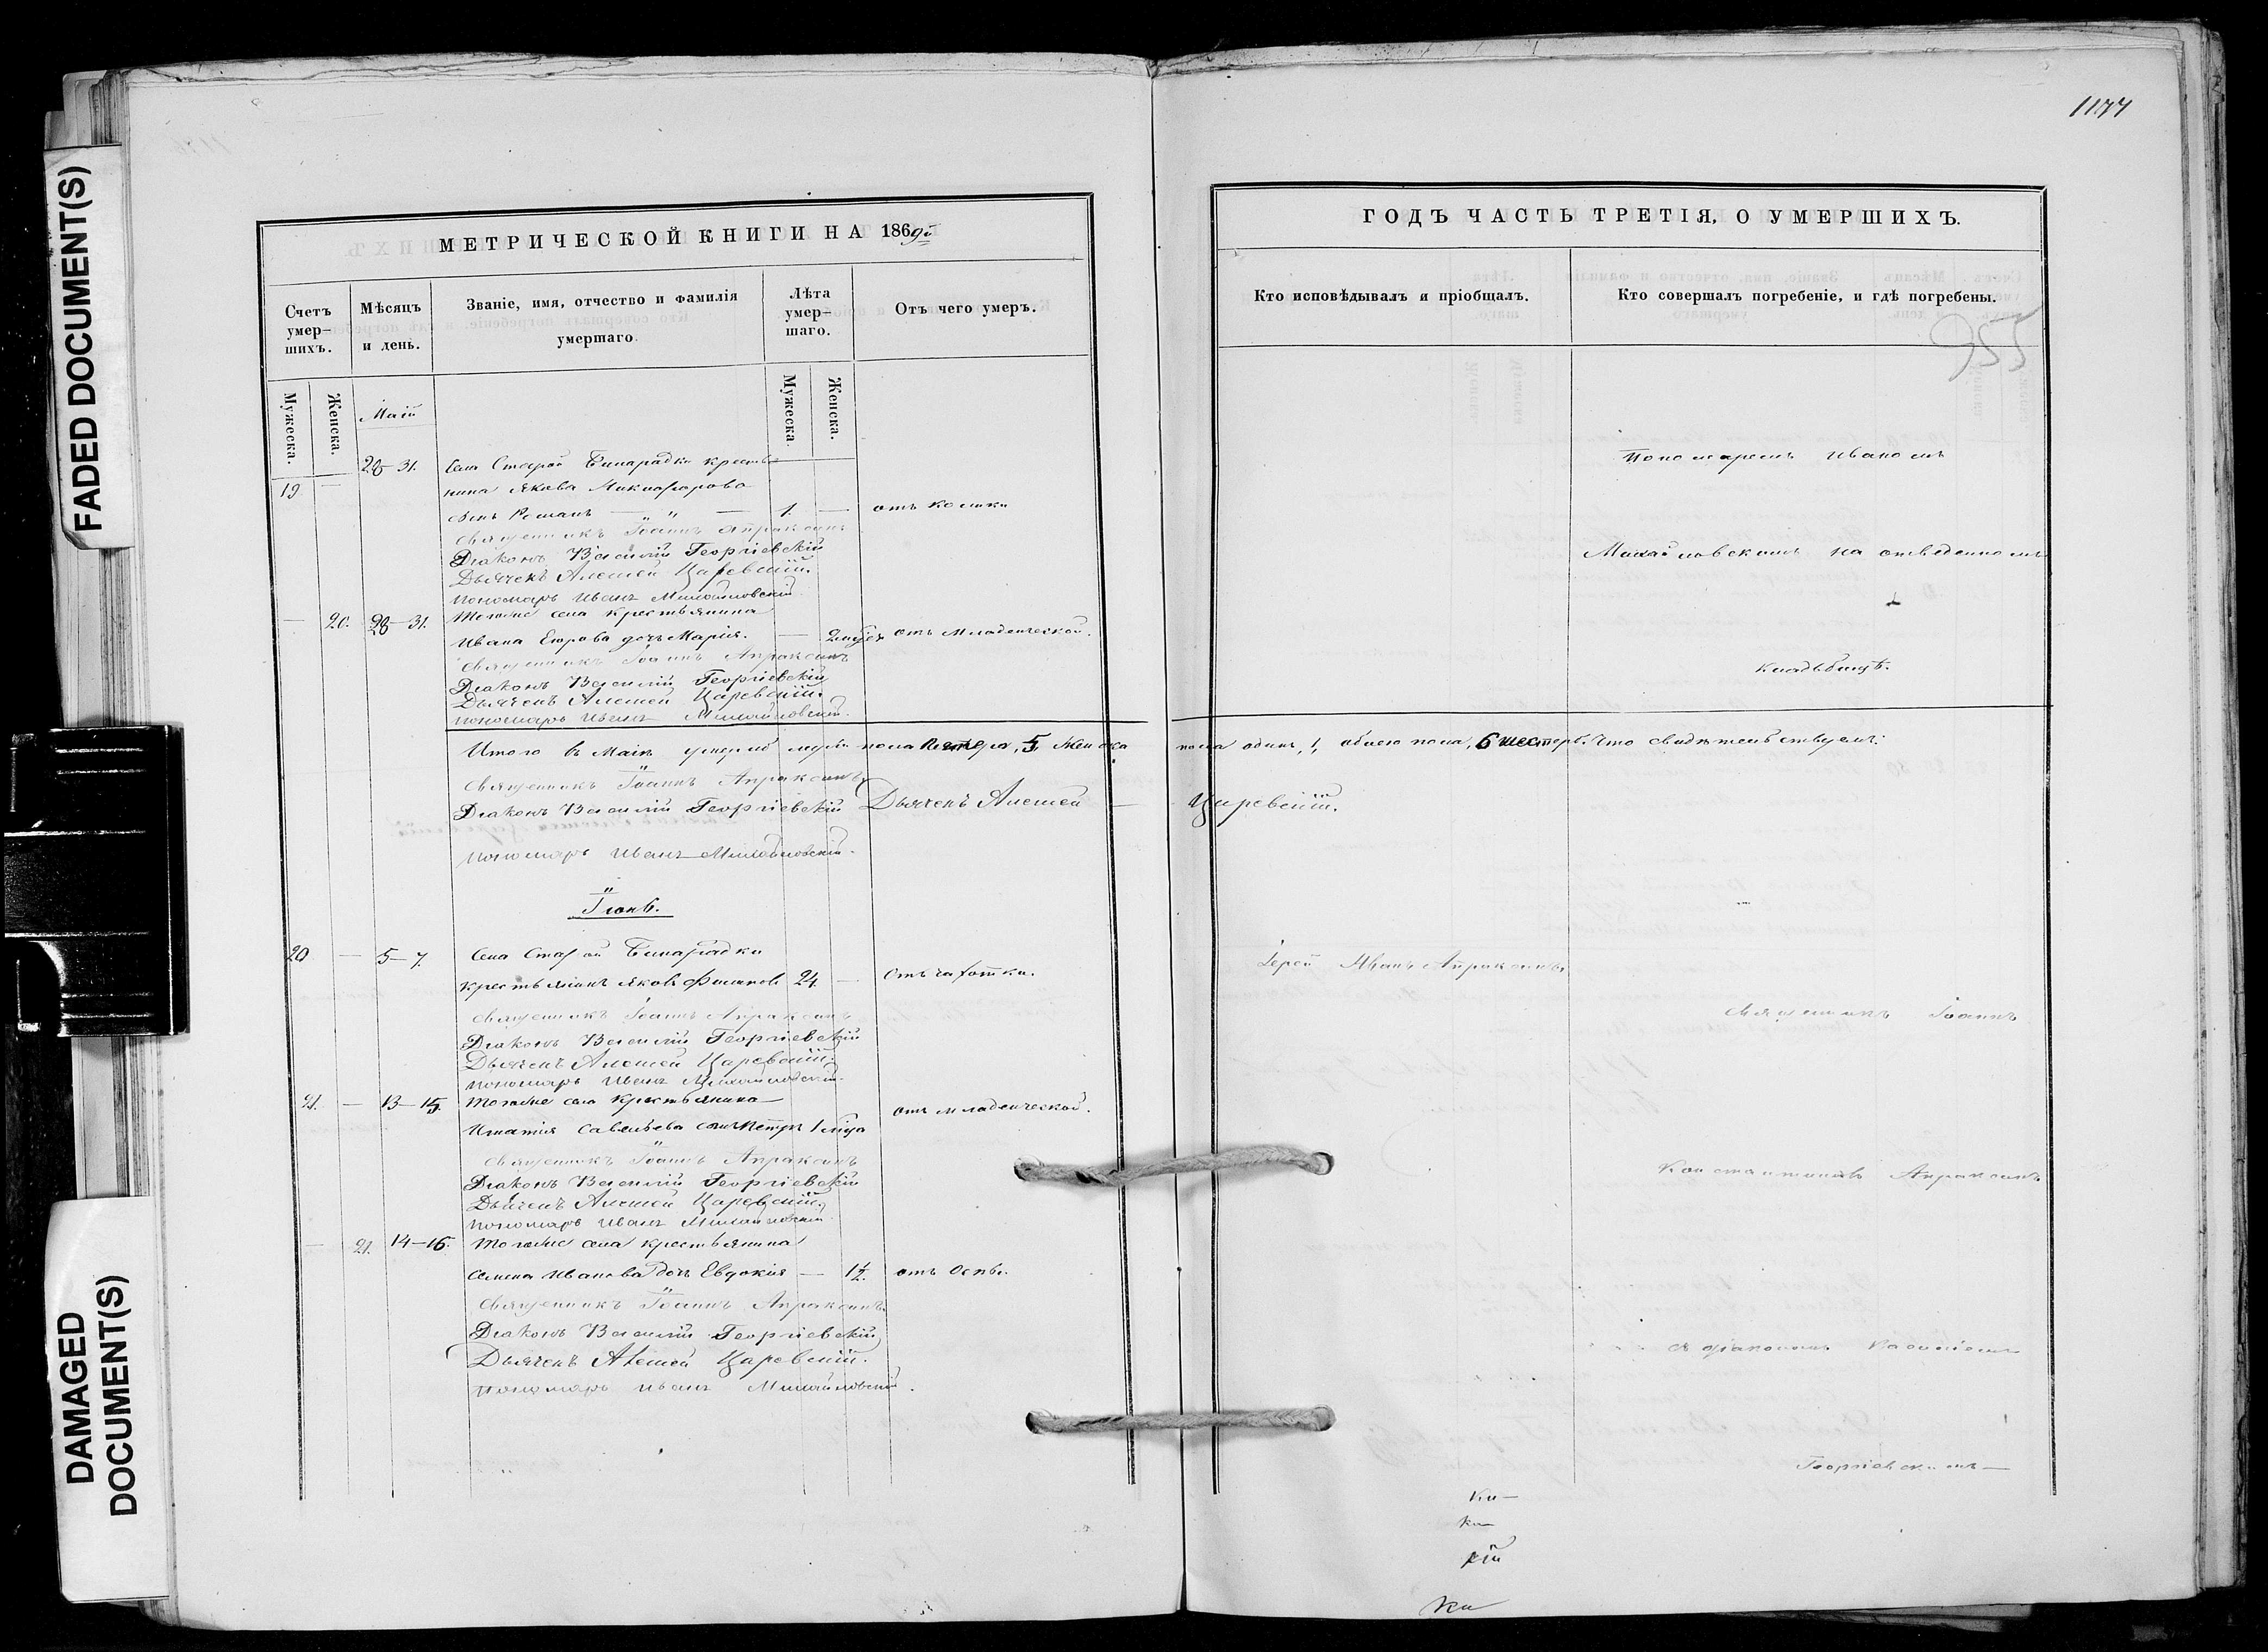 FADED DOCUMENT(S)
DAMAGED
DOCUMENT(S)
МЕТРИЧЕСКОЙ КНИГИ НА 1869й
Счетъ умершихъ.
Мѣсяцъ и день.
Званіе, имя, отчество и фамилія умершаго.
Лѣта умершаго.
Отъ чего умеръ.
Мужеска.
Женска.
Маій
Мужеска
Женска.
19 — 28–31. Села Старой Бинарадки крестья-
нина Якова Никифорова
сынъ Романъ — " — 1. — отъ колики
Священникъ Іоаннъ Апраксинъ
Діаконъ Василій Георгіевскій
Дьячекъ Алексей Царевскій.
пономарь Иванъ Михайловскій
— 20. 28–31. Тогоже села крестьянина
Ивана Егорова дочь Марія. — отъ младенческой.
Священникъ Іоаннъ Апраксинъ
Діаконъ Василій Георгіевскій
Дьячекъ Алексей Царевскій.
пономарь Иванъ Михайловскій.
Итого въ Маіѣ умерло муж. пола пятеро, 5, женска
Священникъ Іоаннъ Апраксинъ
Діаконъ Василій Георгіевскій Дьячекъ Алексей —
пономарь Иванъ Михайловскій.
Іюнь.
20 — 5–7. Села Старой Бинарадки
крестьянинъ Яковъ Филиповъ 24 — Отъ чахотки.
Священникъ Іоаннъ Апраксинъ
Діаконъ Василій Георгіевскій
Дьячекъ Алексей Царевскій.
пономарь Иванъ Михайловскій.
21. — 13–15. Тогоже села крестьянина
Игнатія Савельева сынъ Петръ отъ младенческой.
Священникъ Іоаннъ Апраксинъ
Діаконъ Василій Георгіевскій
Дьячекъ Алексей Царевскій.
пономарь Иванъ Михайловскій
— 21. 14–16. Тогоже села крестьянина
Семена Иванова дочь Евдокія — 1½ отъ Оспы.
Священникъ Іоаннъ Апраксинъ.
Діаконъ Василій Георгіевскій
Дьячекъ Алексей Царевскій.
пономарь Иванъ Михайловскій.
1177
ГОДЪ ЧАСТЬ ТРЕТІЯ, О УМЕРШИХЪ.
Кто исповѣдывалъ и пріобщалъ.
Кто совершалъ погребеніе, и гдѣ погребены.
955
Пономаремъ Иваномъ
Михайловскимъ на отведенномъ
кладбищѣ.
пола одинъ, 1, обоего пола, 6 шестеро. Что свидѣтельствуемъ:
Царевскій.
Іерей Иванъ Апраксинъ
Священникъ Іоаннъ
Константиновъ Апраксинъ
съ діакономъ Василіемъ
Георгіевскимъ —
ки —
ки
кій
ки